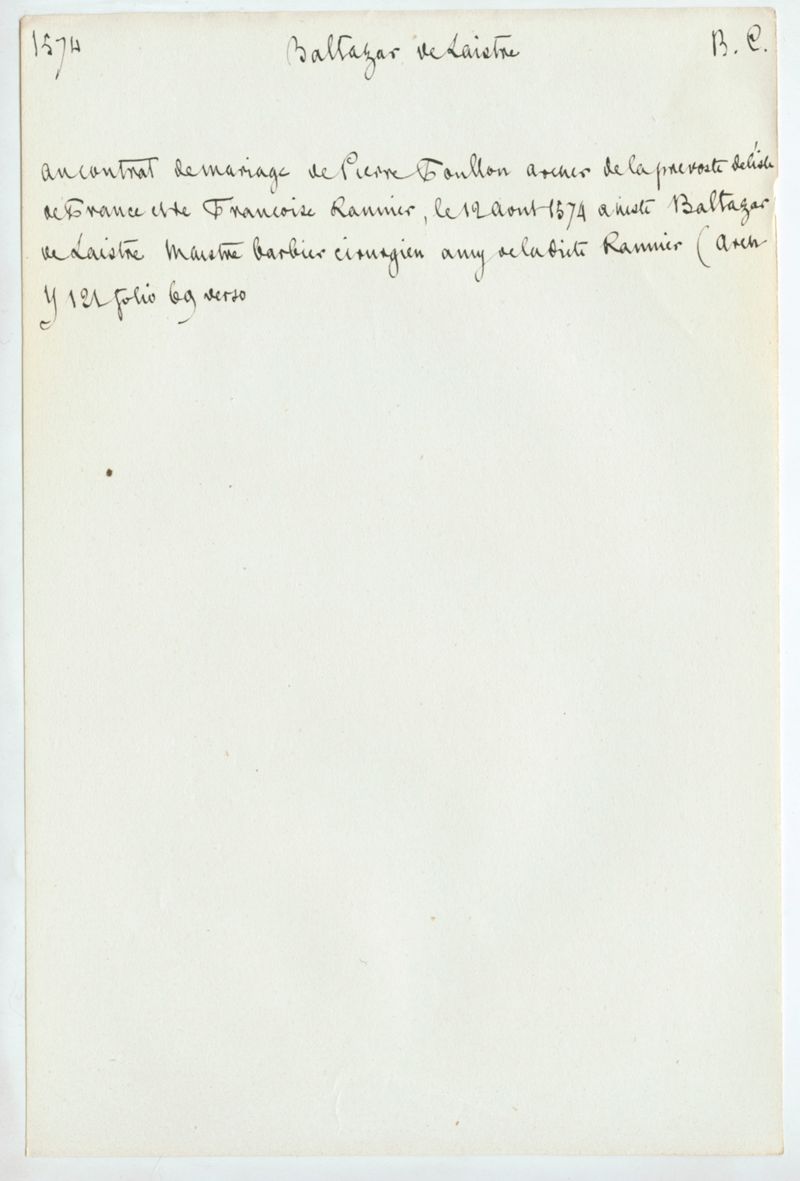 1574 Baltazar de Laistre B. C.
au contrat de mariage de Pierre Foullon archer de la prevosté de l'isle
de France et de Francoise Ranmier, le 12 Aout 1574 assiste Baltazar
de Laistre Maistre barbier cirurgien amy de ladicte Ranmier (Arch
Y 121 folio 69 verso